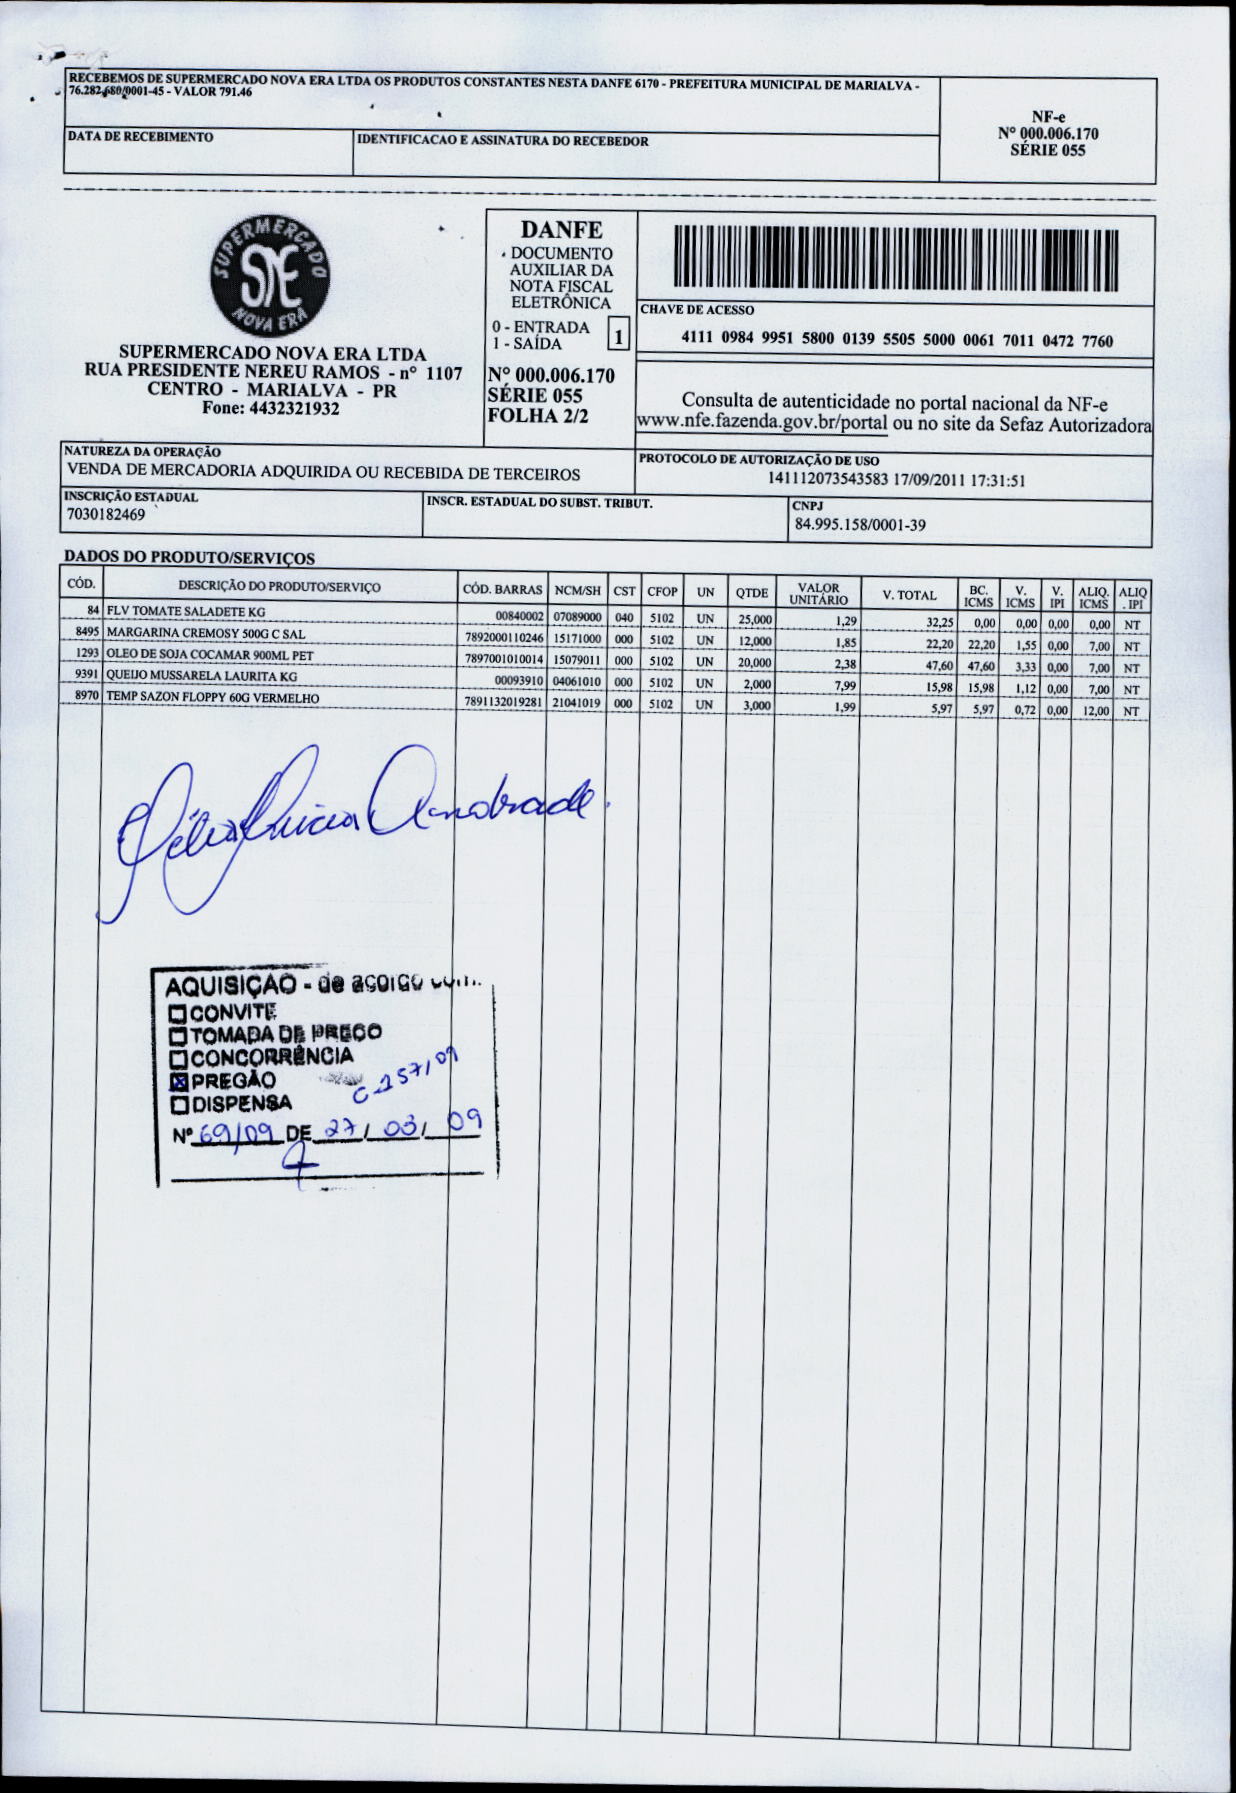 RECEBEMOS DE SUPERMERCADO NOVA ERA LTDA OS PRODUTOS CONSTANTES NESTA DANFE 6170 - PREFEITURA MUNICIPAL DE MARIALVA -
76.282.680/0001-45 - VALOR 791.46
DATA DE RECEBIMENTO
IDENTIFICACAO E ASSINATURA DO RECEBEDOR
NF-e
Nº 000.006.170
SÉRIE 055
SUPERMERCADO
NOVA ERA
SUPERMERCADO NOVA ERA LTDA
RUA PRESIDENTE NEREU RAMOS - nº 1107
CENTRO - MARIALVA - PR
Fone: 4432321932
DANFE
DOCUMENTO
AUXILIAR DA
NOTA FISCAL
ELETRÔNICA
0 - ENTRADA
1 - SAÍDA
1
Nº 000.006.170
SÉRIE 055
FOLHA 2/2
CHAVE DE ACESSO
4111 0984 9951 5800 0139 5505 5000 0061 7011 0472 7760
Consulta de autenticidade no portal nacional da NF-e
www.nfe.fazenda.gov.br/portal ou no site da Sefaz Autorizadora
NATUREZA DA OPERAÇÃO
VENDA DE MERCADORIA ADQUIRIDA OU RECEBIDA DE TERCEIROS
PROTOCOLO DE AUTORIZAÇÃO DE USO
141112073543583 17/09/2011 17:31:51
INSCRIÇÃO ESTADUAL
7030182469
INSCR. ESTADUAL DO SUBST. TRIBUT.
CNPJ
84.995.158/0001-39
DADOS DO PRODUTO/SERVIÇOS
CÓD. DESCRIÇÃO DO PRODUTO/SERVIÇO CÓD. BARRAS NCM/SH CST CFOP UN QTDE VALOR UNITÁRIO V. TOTAL BC. ICMS V. ICMS V. IPI ALIQ. ICMS ALIQ . IPI
84 FLV TOMATE SALADETE KG 00840002 07089000 040 5102 UN 25,000 1,29 32,25 0,00 0,00 0,00 0,00 NT
8495 MARGARINA CREMOSY 500G C SAL 7892000110246 15171000 000 5102 UN 12,000 1,85 22,20 22,20 1,55 0,00 7,00 NT
1293 OLEO DE SOJA COCAMAR 900ML PET 7897001010014 15079011 000 5102 UN 20,000 2,38 47,60 47,60 3,33 0,00 7,00 NT
9391 QUEIJO MUSSARELA LAURITA KG 00093910 04061010 000 5102 UN 2,000 7,99 15,98 15,98 1,12 0,00 7,00 NT
8970 TEMP SAZON FLOPPY 60G VERMELHO 7891132019281 21041019 000 5102 UN 3,000 1,99 5,97 5,97 0,72 0,00 12,00 NT
Andrade
AQUISIÇÃO - de acordo com
CONVITE
TOMADA DE PREÇO
CONCORRÊNCIA
PREGÃO
C-257/09
DISPENSA
Nº 69/09 DE 27/03/09